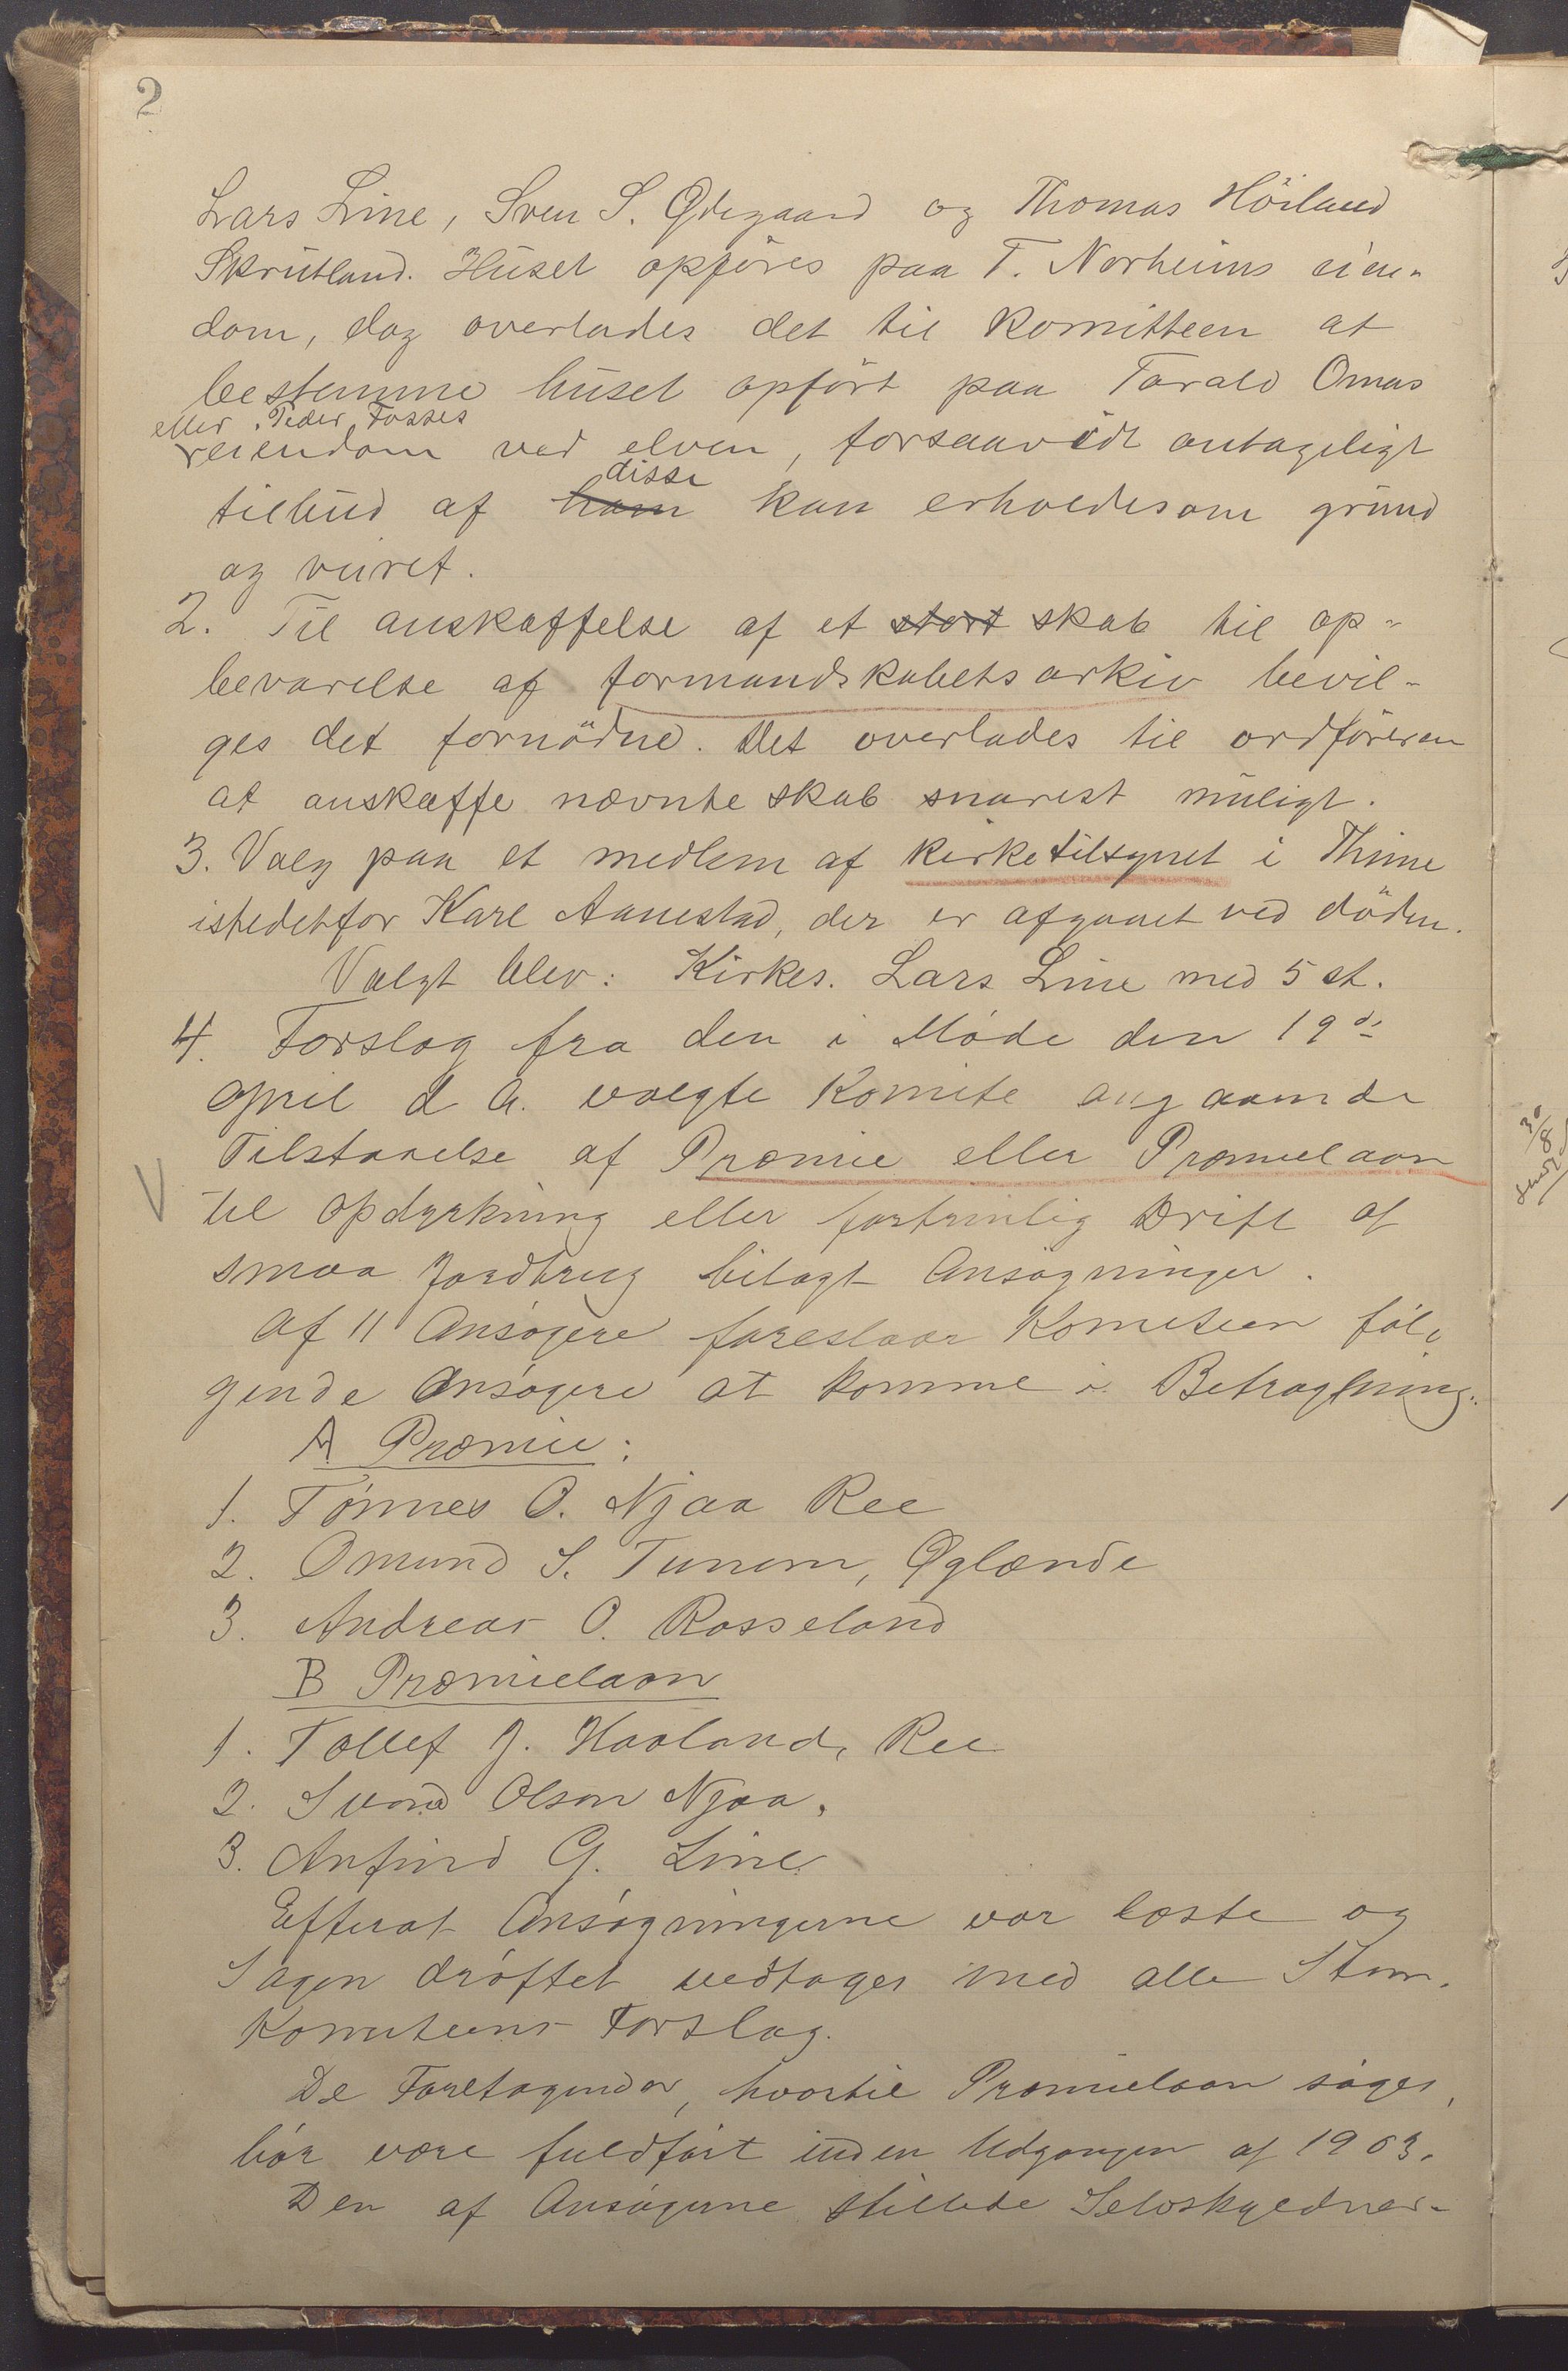 2
Lars Line, Sven S. Ødegaard og Thomas Höiland
Skrudland. Huset opföres paa T. Norheims eien-
dom, dog overlades det til komitteen at
bestemme huset opfört paa Tarald Omas
eller Peder Fosses
eiendom ved elven, forsaavidt antageligt
disse
tilbud af ham kan erholdes om grund
og veiret.
2. Til anskaffelse af et stort skab til op-
bevarelse af formandskabets arkiv bevil-
ges det fornödne. Det overlades til ordföreren
at anskaffe nævnte skab snarest muligt.
3. Valg paa et medlem af kirketilsynet i Thime
istedetfor Karl Aanestad, der er afgaaet ved döden.
Valgt blev: Kirkes. Lars Line med 5 st.
4. Forslag fra den i Móde den 19de
April d A. valgte Komite angaaende
Tilstaaelse af Præmie eller Præmielaan
V
til Opdyrkning eller fortrinlig Drift af
smaa Jordbrug bilagt Ansøgninger.
Af 11 Ansøgere foreslaar Komiteen føl-
gende Ansøgere at komme i Betragtning:
A Præmie:
1. Tønnes O. Njaa Ree
2. Omund S. Tunem, Øglænde
3. Andreas O. Rosseland
B Præmielaan
1. Tollef J. Haaland, Ree
2. Svend Olsen Njaa,
3. Anfind G. Line
Efterat Ansøgningerne var læste og
Sagen drøftet vedtoges med alle Stem.
Komiteens Forslag.
De Foretagender, hvortil Præmielaan søges,
bør være fuldført inden Udgangen af 1903.
Den af Ansøgerne stillede Selvskyldner-
30/8